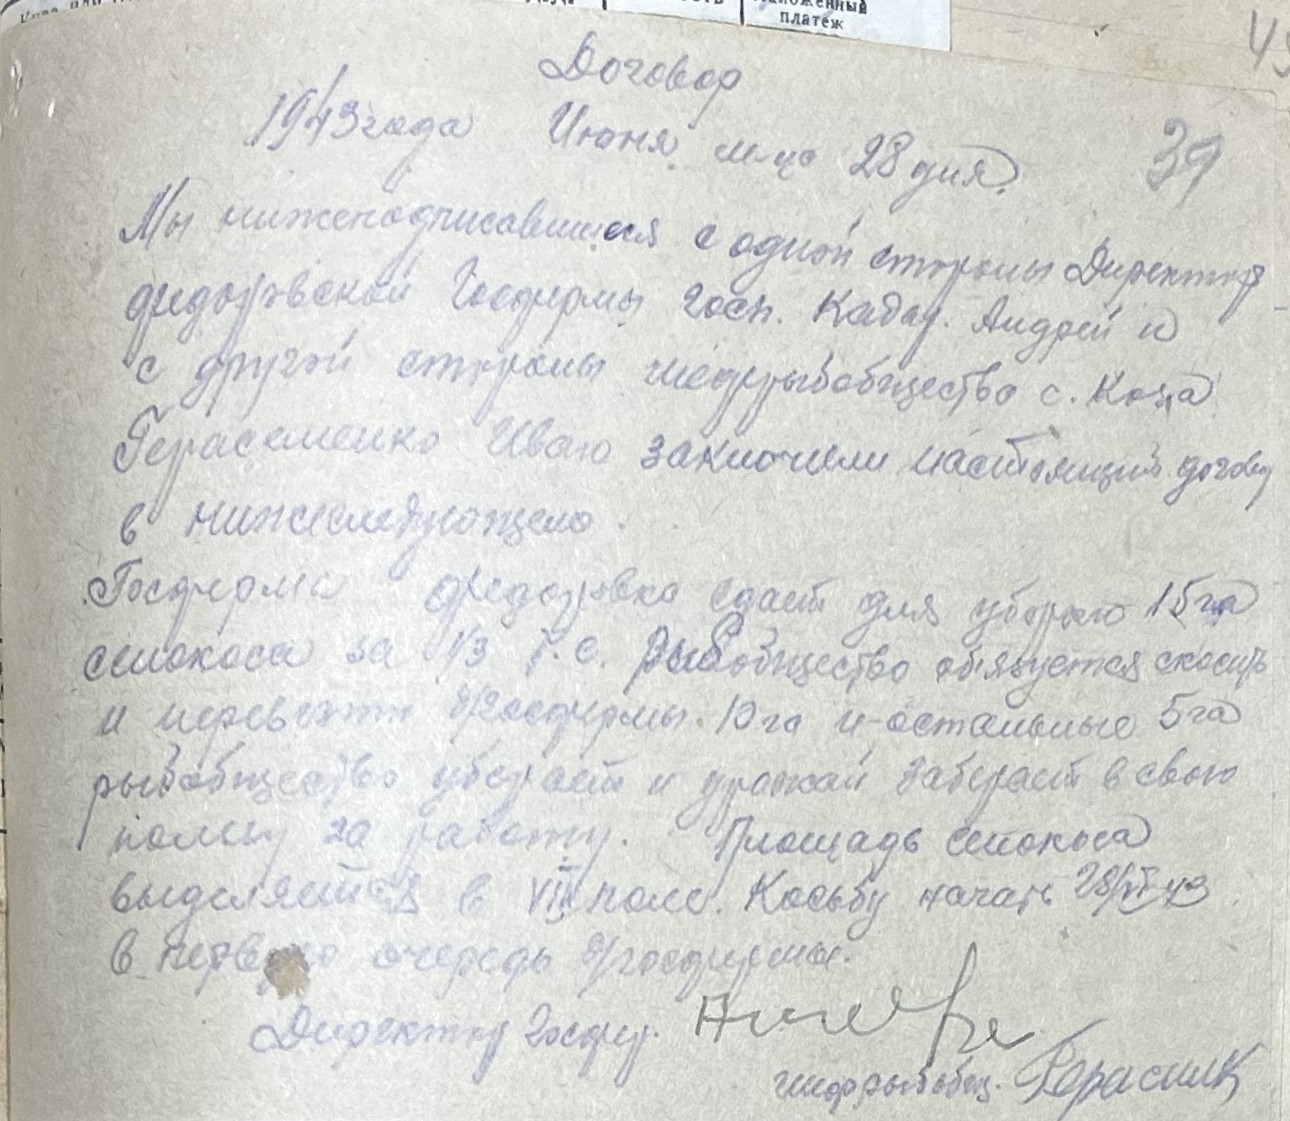 наложенный
платеж
Договор
1943 года Июня м-ца 28 дня.
39
Мы нижеподписавшиеся с одной стороны Директор
федоровской Госфермы госп. Андрей и
с другой стороны шефрыбобщество с.
Герасеменко Иваю заключили настоящий договор
в нижеследующем.
Госферма федоровка сдает для уборки 15 га
сенокоса за 1/3 т.е. Рыбобщество обязуется скосить
и перевезти д/госфермы 10 га и остальные 5 га
рыбобщество уберает и урожай заберает в свою
пользу за работу. Площадь сенокоса
выделяется в VII поле. Косьбу начать 28/VI 43
в первую очередь д/госфермы.
Директор госфер.
шефрыбобщ. Герасимк